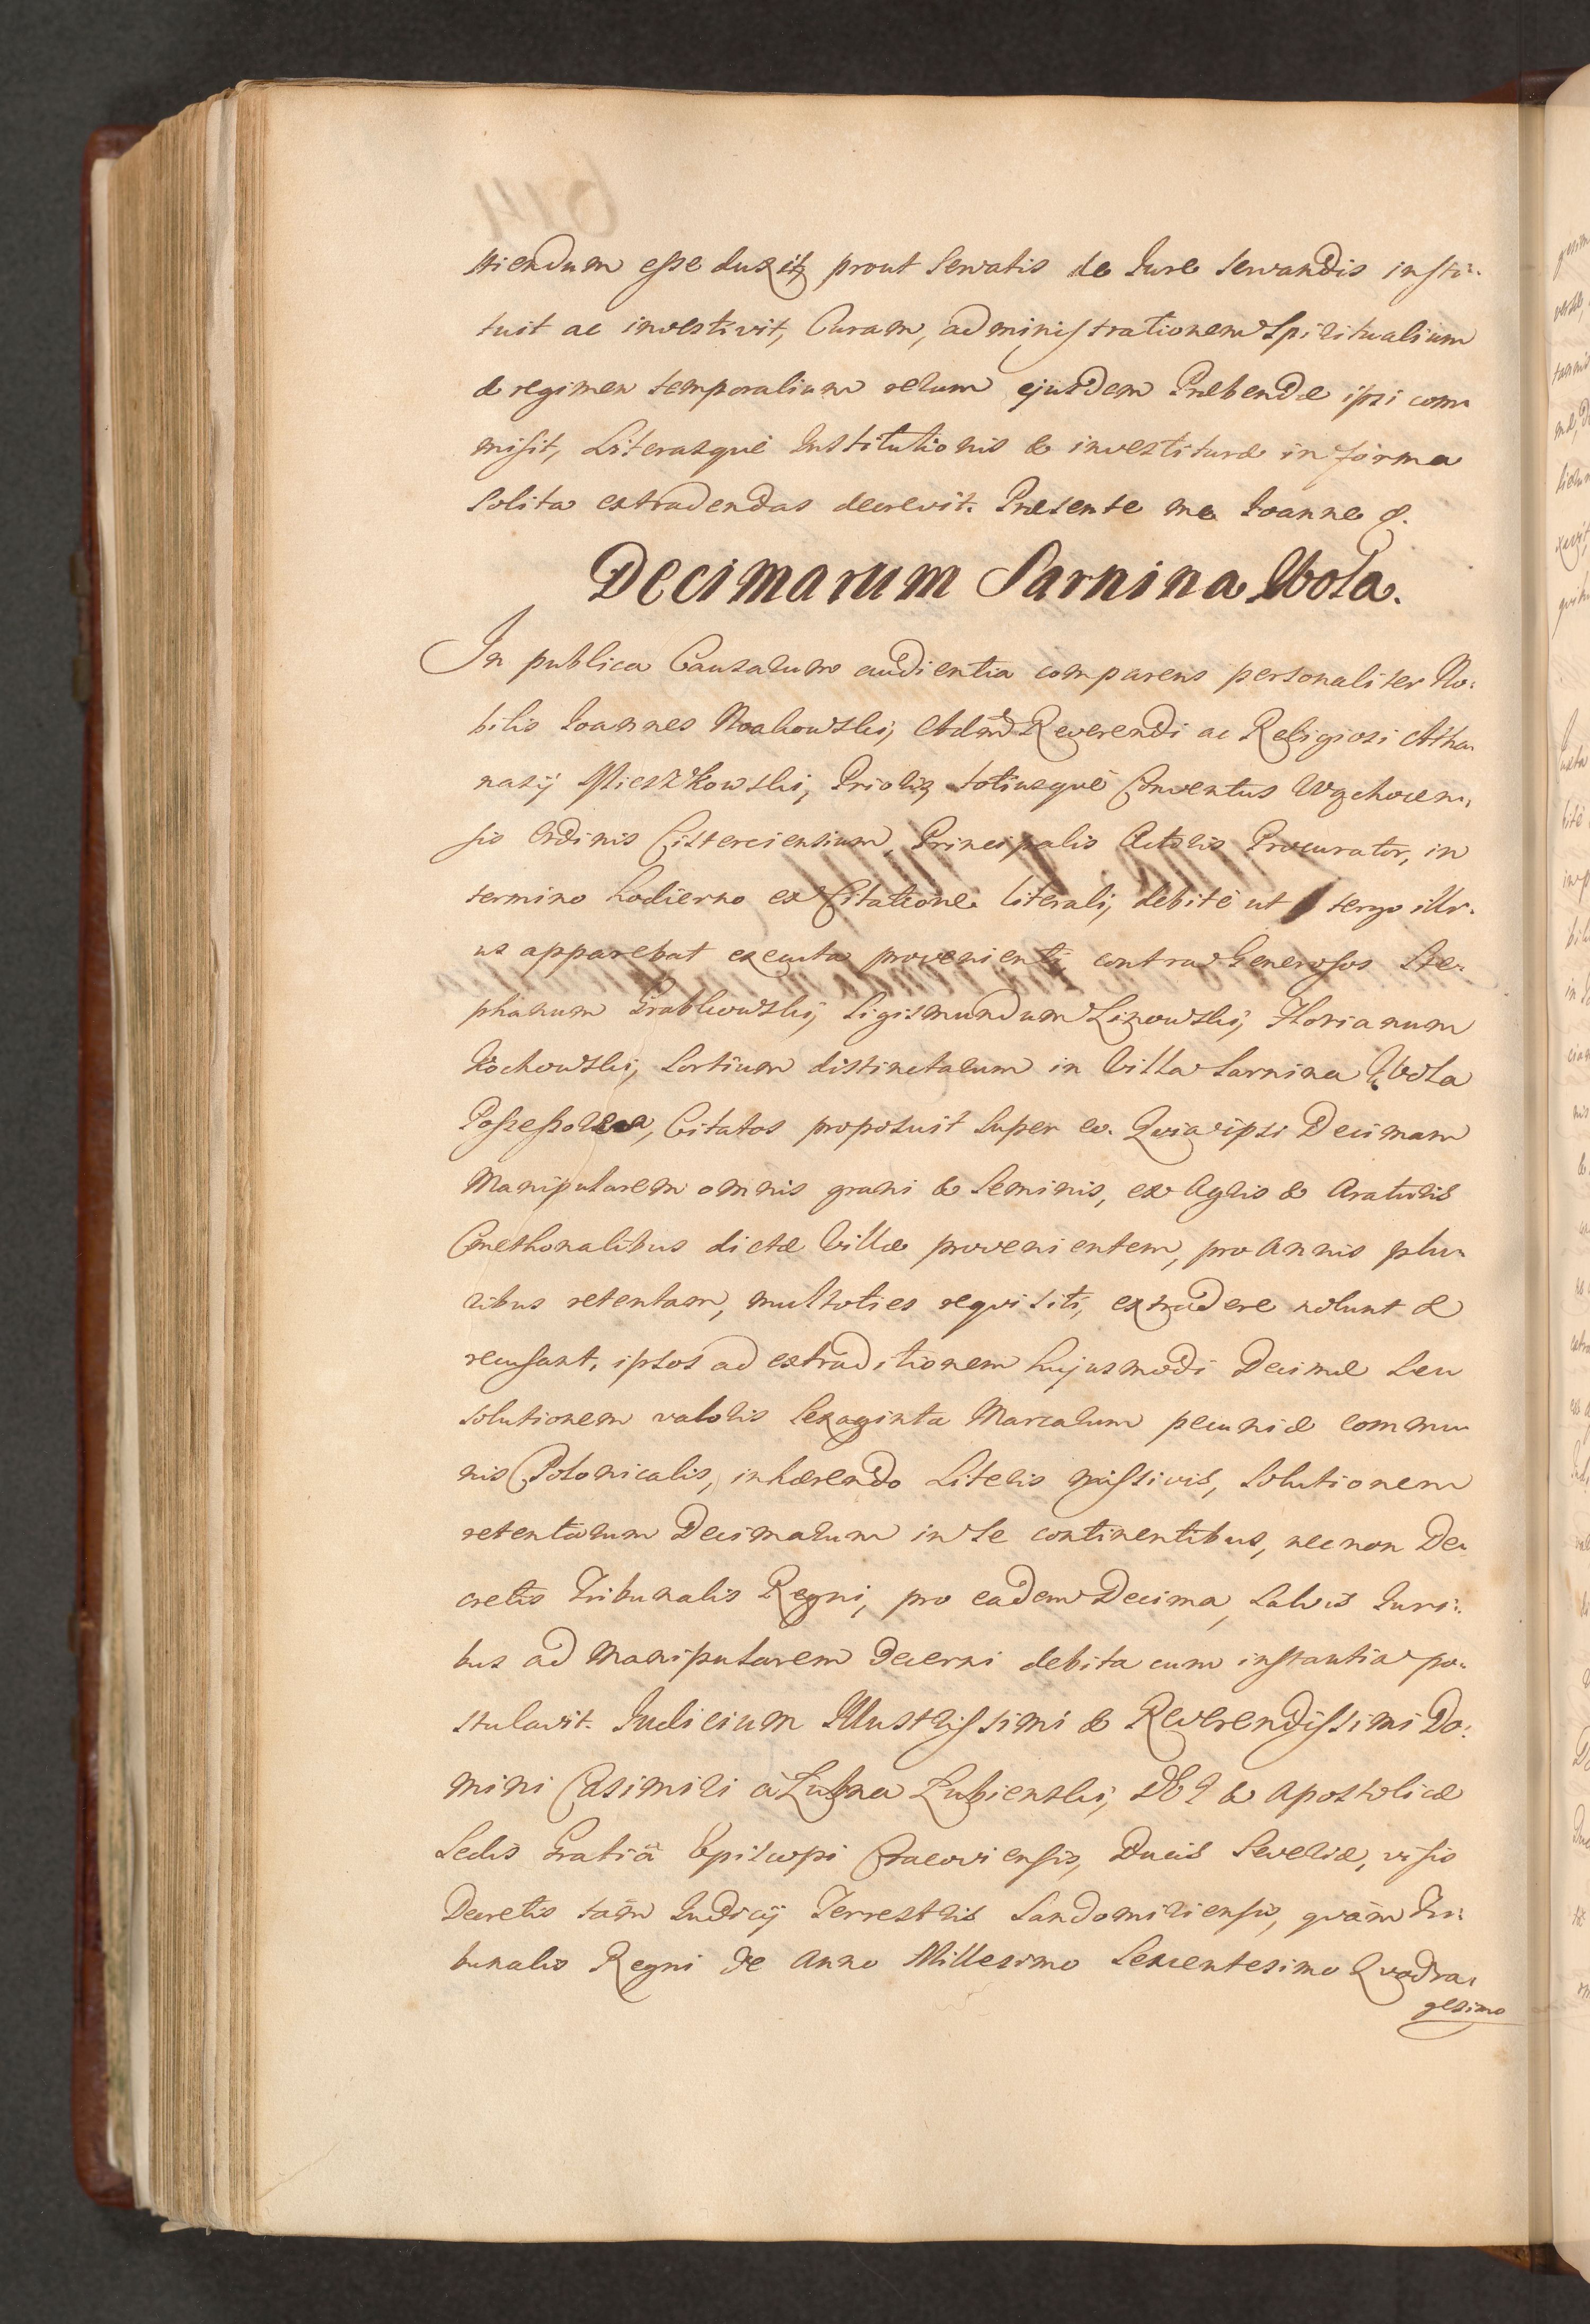 ttiendum esse duxit, prout servatis de Iure servandis insti-
tuit ac investivit, Curam, administrationem Spiritualium
& regimen temporalium rerum ejusdem Præbendæ ipsi com-
misit, Literasque Institutionis & investituræ in forma
solita extradendas decrevit. Præsente me Ioanne &.
Decimarum Sarnina Wola.
In publica Causarum audientia comparens personaliter No-
bilis Ioannes Noakowski, Adm Reverendi ac Religiosi Atha-
nasij Mieszkowski, Prioris, totiusque Conventus Wąchocen-
sis Ordinis Cisterciensium, Principalis Actoris Procurator, in
termino hodierno ex Citatione literali, debitè ut tergo illi-
us apparebat executa provenienti, contra Generosos Ste-
phanum Grabkowski, Sigismundum Linowski, Florianum
Kochowski, Sortium distinctarum in Villa Sarnina Wola
Possessores, Citatos proposuit super eo. Quia ipsi Decimam
Manipularem omnis grani & seminis, ex Agris & Araturis
Cmethonalibus dictæ Villæ provenientem, pro Annis plu-
ribus retentam, multoties requisiti, extradere nolunt &
recusant, ipsos ad extraditionem hujusmodi Decimæ seu
solutionem valoris sexaginta Marcarum pecuniæ commu-
nis Polonicalis, inhærendo Literis missivis, solutionem
retentarum Decimarum in se continentibus, nec non De-
cretis Tribunalis Regni, pro eadem Decima, salvis Iuri-
bus ad Manipularem decerni debita cum instantia po-
stulavit. Iudicium Illustrissimi & Reverendissimi Do-
mini Casimiri à Łubna Łubienski, DEI & Apostolicæ
Sedis Gratiâ Episcopi Cracoviensis, Ducis Severiæ, visis
Decretis tàm Iudicij Terrestris Sandomiriensis, quàm Tri-
bunalis Regni de Anno Millesimo Sexcentesimo Quadra-
gesimo